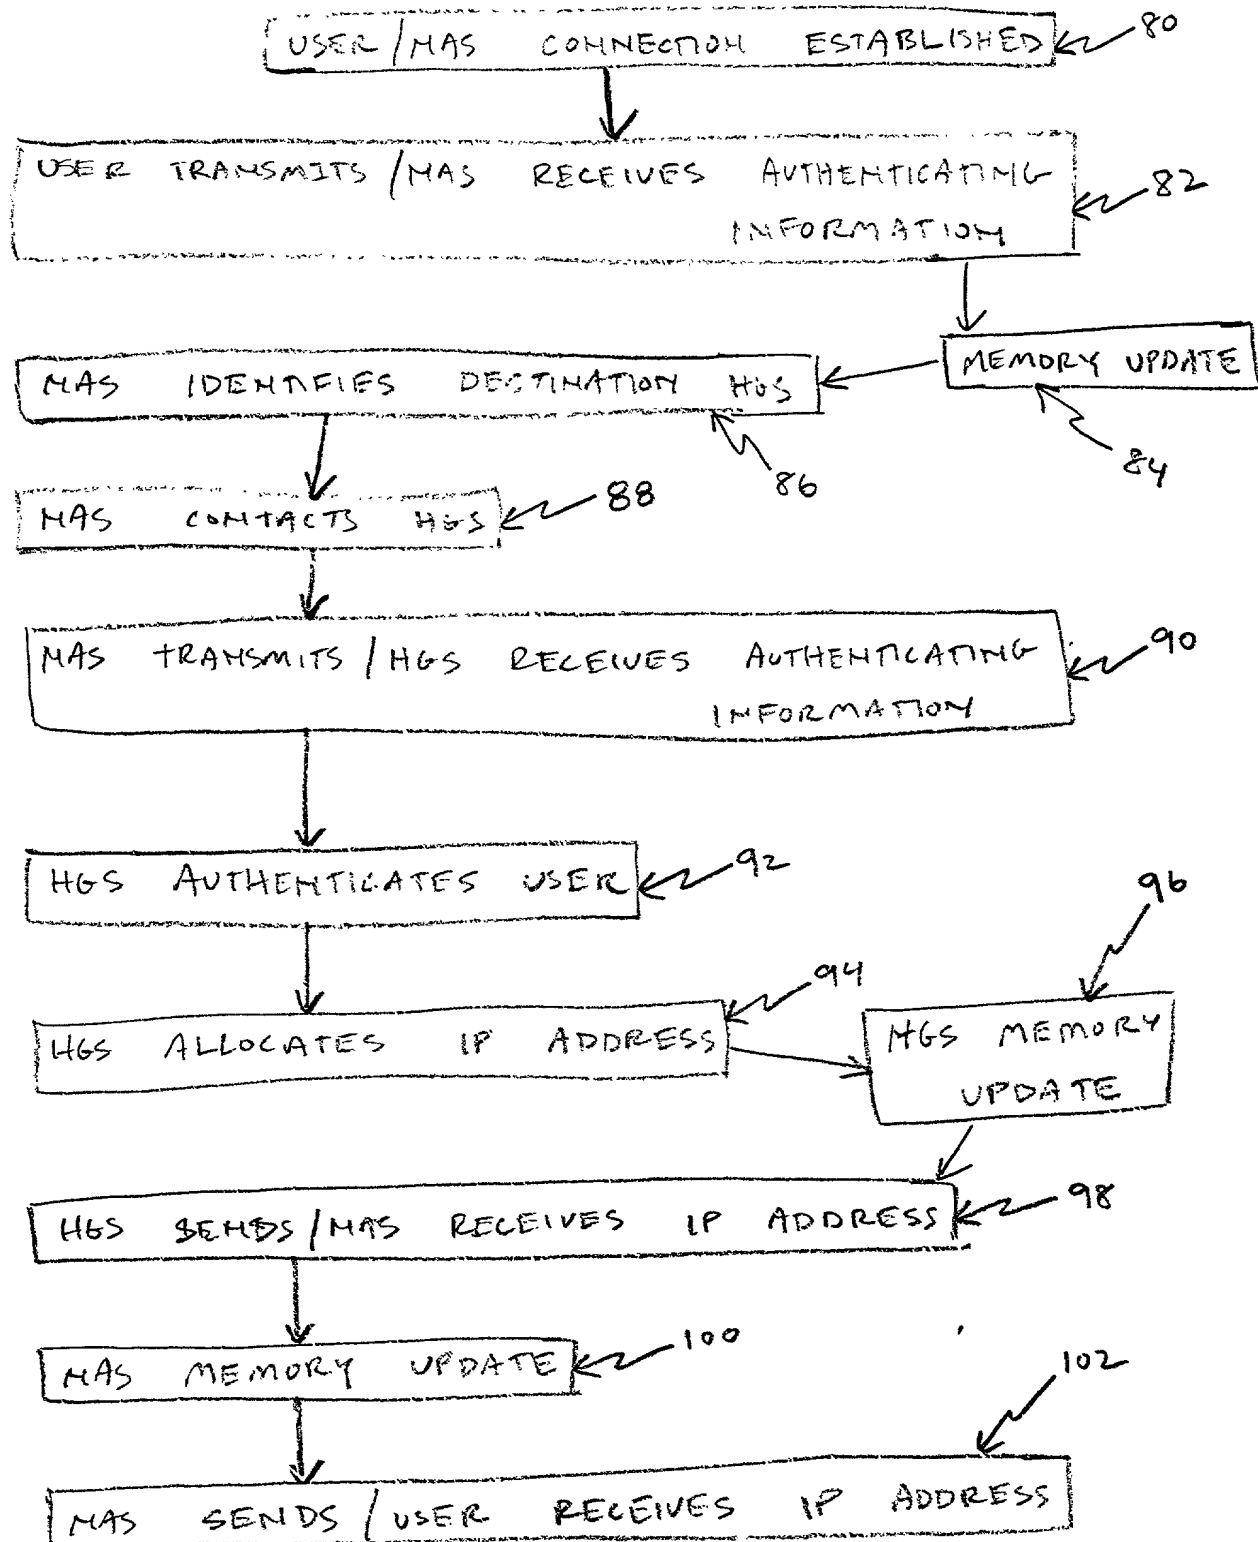 USER/MAS CONNECTION ESTABLISHED
80
USER TRANSMITS/MAS RECEIVES AUTHENTICATING
INFORMATION
82
MEMORY UPDATE
84
MAS IDENTIFIES DESTINATION HGS
86
MAS CONTACTS HGS
88
MAS TRANSMITS/HGS RECEIVES AUTHENTICATING
INFORMATION
90
HGS AUTHENTICATES USER
92
HGS ALLOCATES IP ADDRESS
94
HGS MEMORY
UPDATE
96
HGS SENDS/MAS RECEIVES IP ADDRESS
98
MAS MEMORY UPDATE
100
MAS SENDS/USER RECEIVES IP ADDRESS
102